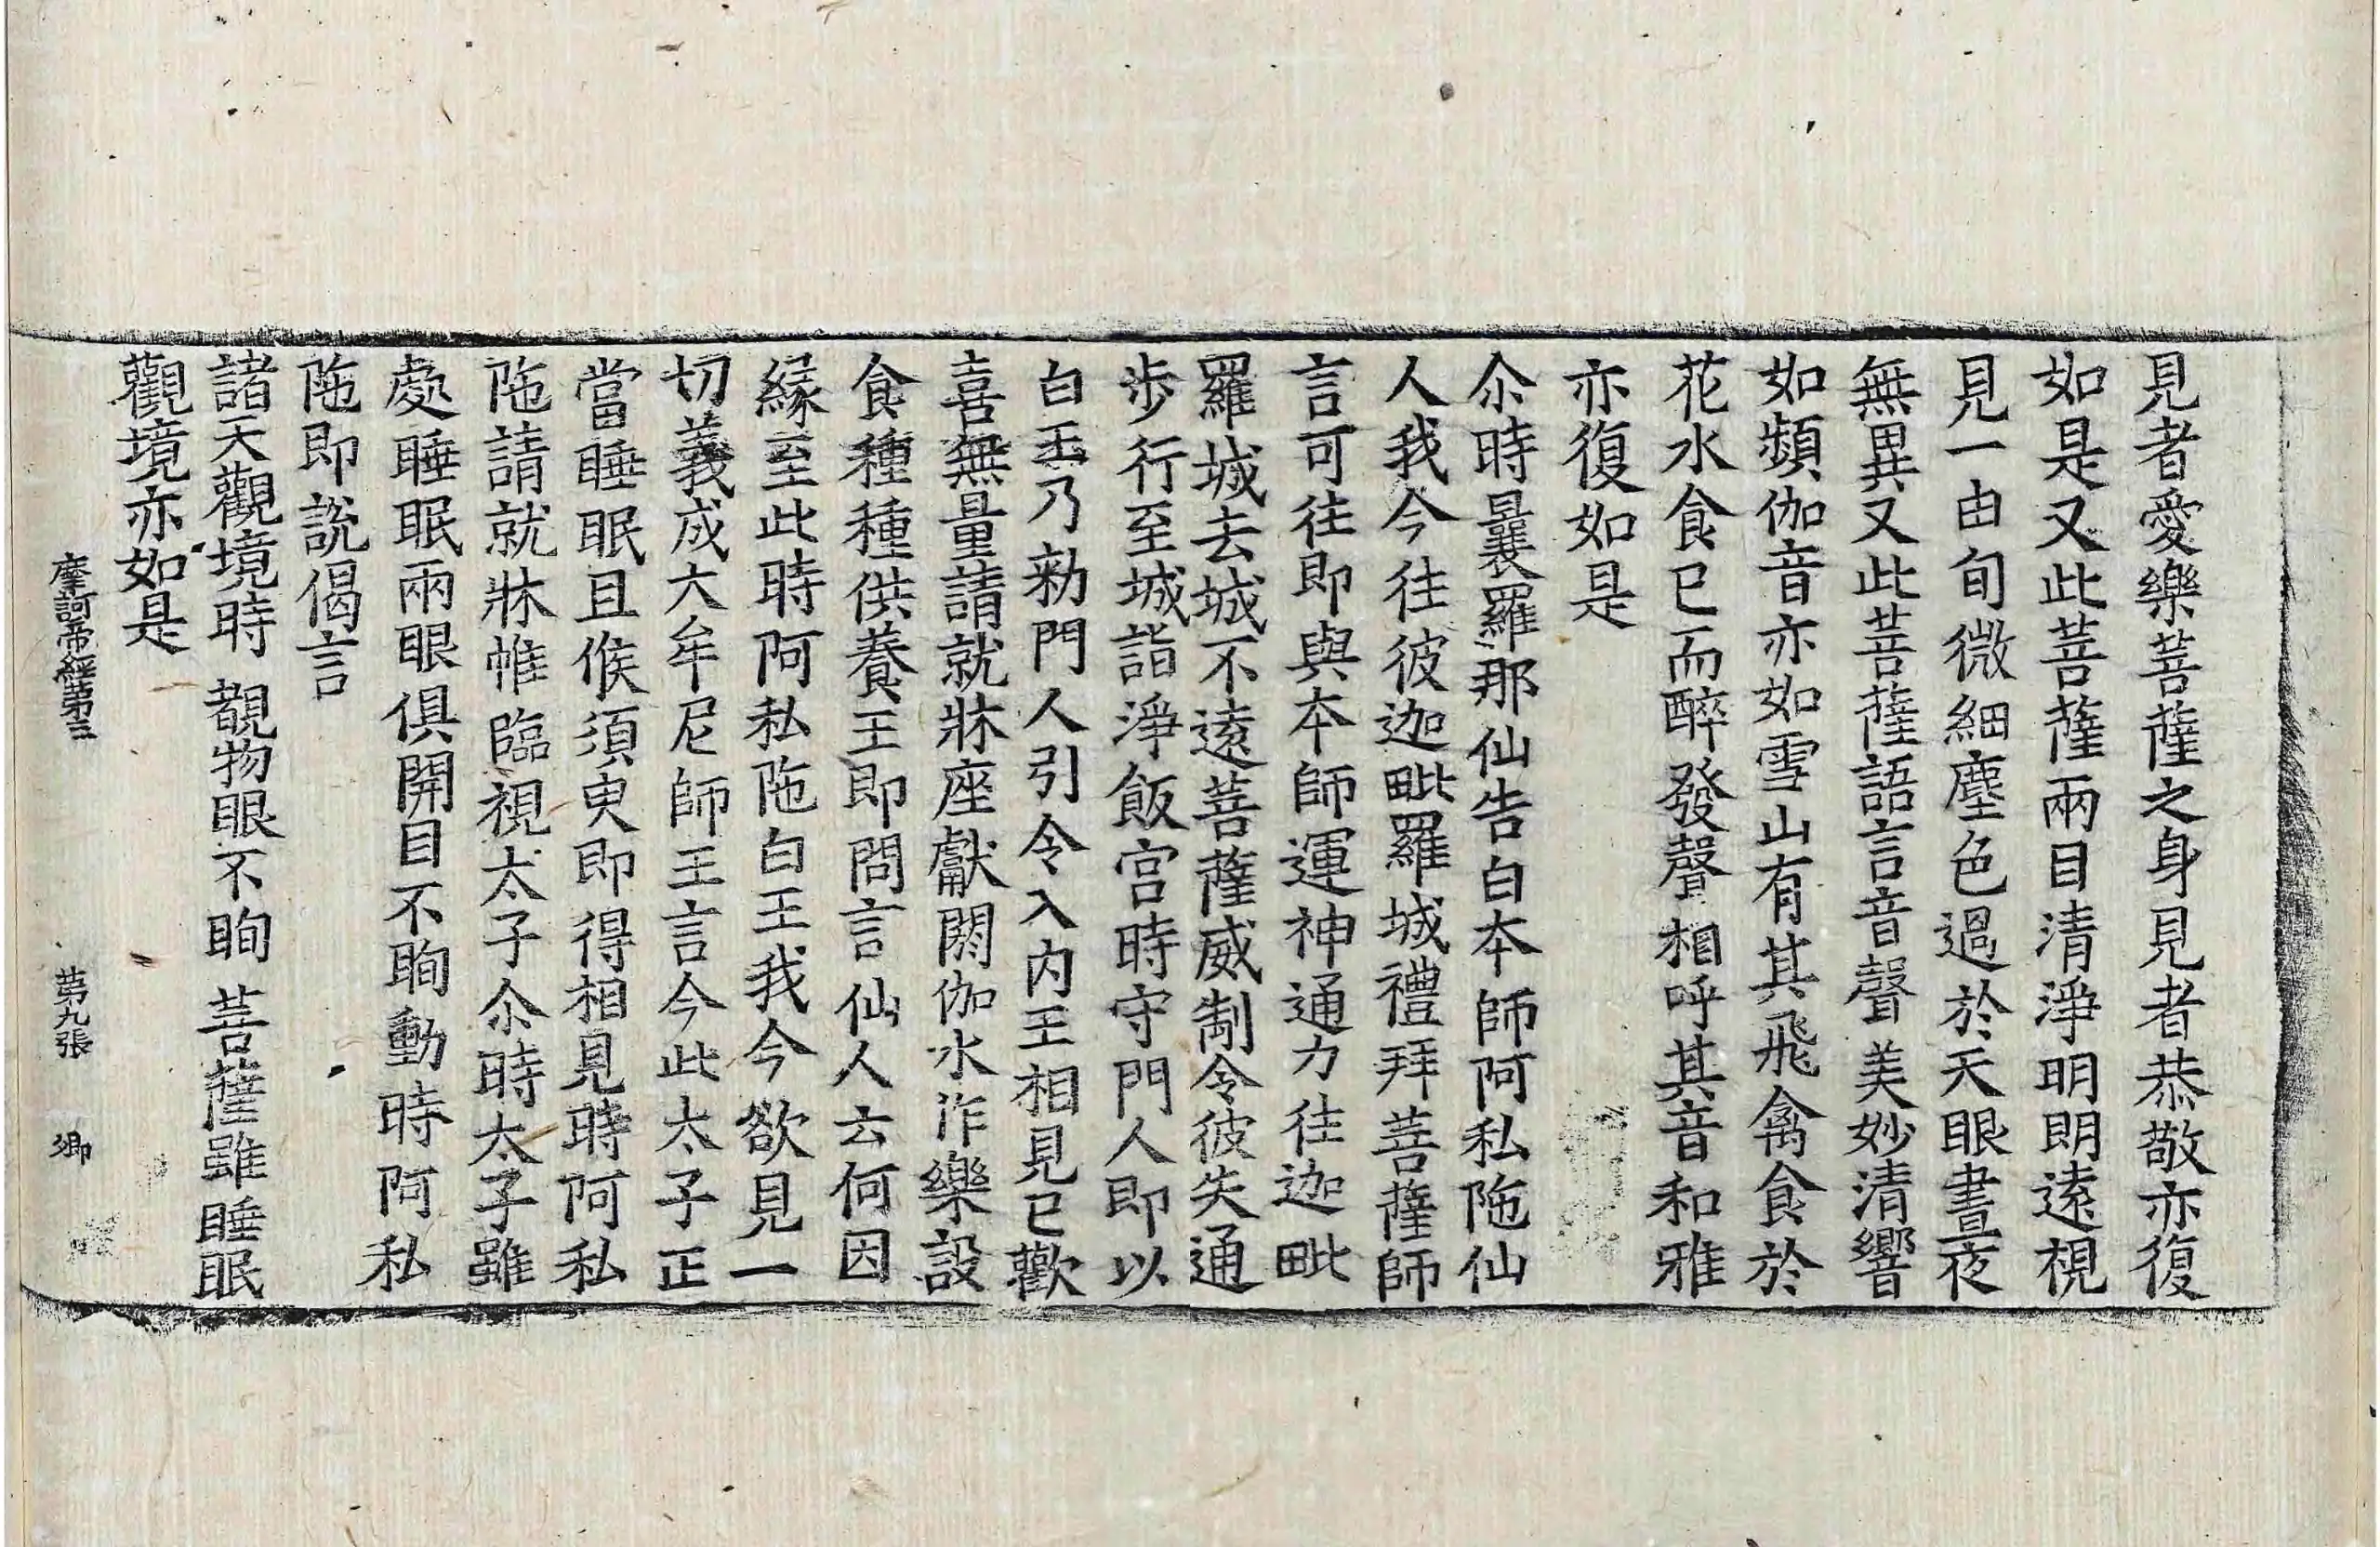 見者愛樂菩薩之身見者恭敬亦復
如是又此菩薩兩目清淨明朗遠視
見一由旬微細塵色過於天眼晝夜
無異又此菩薩語言音聲美妙清響
如頻伽音亦如雪山有其飛禽食於
花水食已而醉發聲相呼其音和雅
亦復如是
尒時曩羅那仙告白本師阿私陁仙
人我今往彼迦毗羅城禮拜菩薩師
言可往即與本師運神通力往迦毗
羅城去城不遠菩薩威制令彼失通
步行至城詣淨飯宮時守門人即以
白王乃勑門人引令入內王相見已歡
喜無量請就牀座獻閼伽水作樂設
食種種供養王即問言仙人云何因
緣至此時阿私陁白王我今欲見一
切義成大牟尼師王言今此太子正
當睡眠且候須臾即得相見時阿私
陁請就牀帷臨視太子尒時太子雖
處睡眠兩眼俱開目不眴動時阿私
陁即說偈言
諸天觀境時　覩物眼不眴　菩薩雖睡眠
觀境亦如是
摩訶帝經第三　第九張　卿